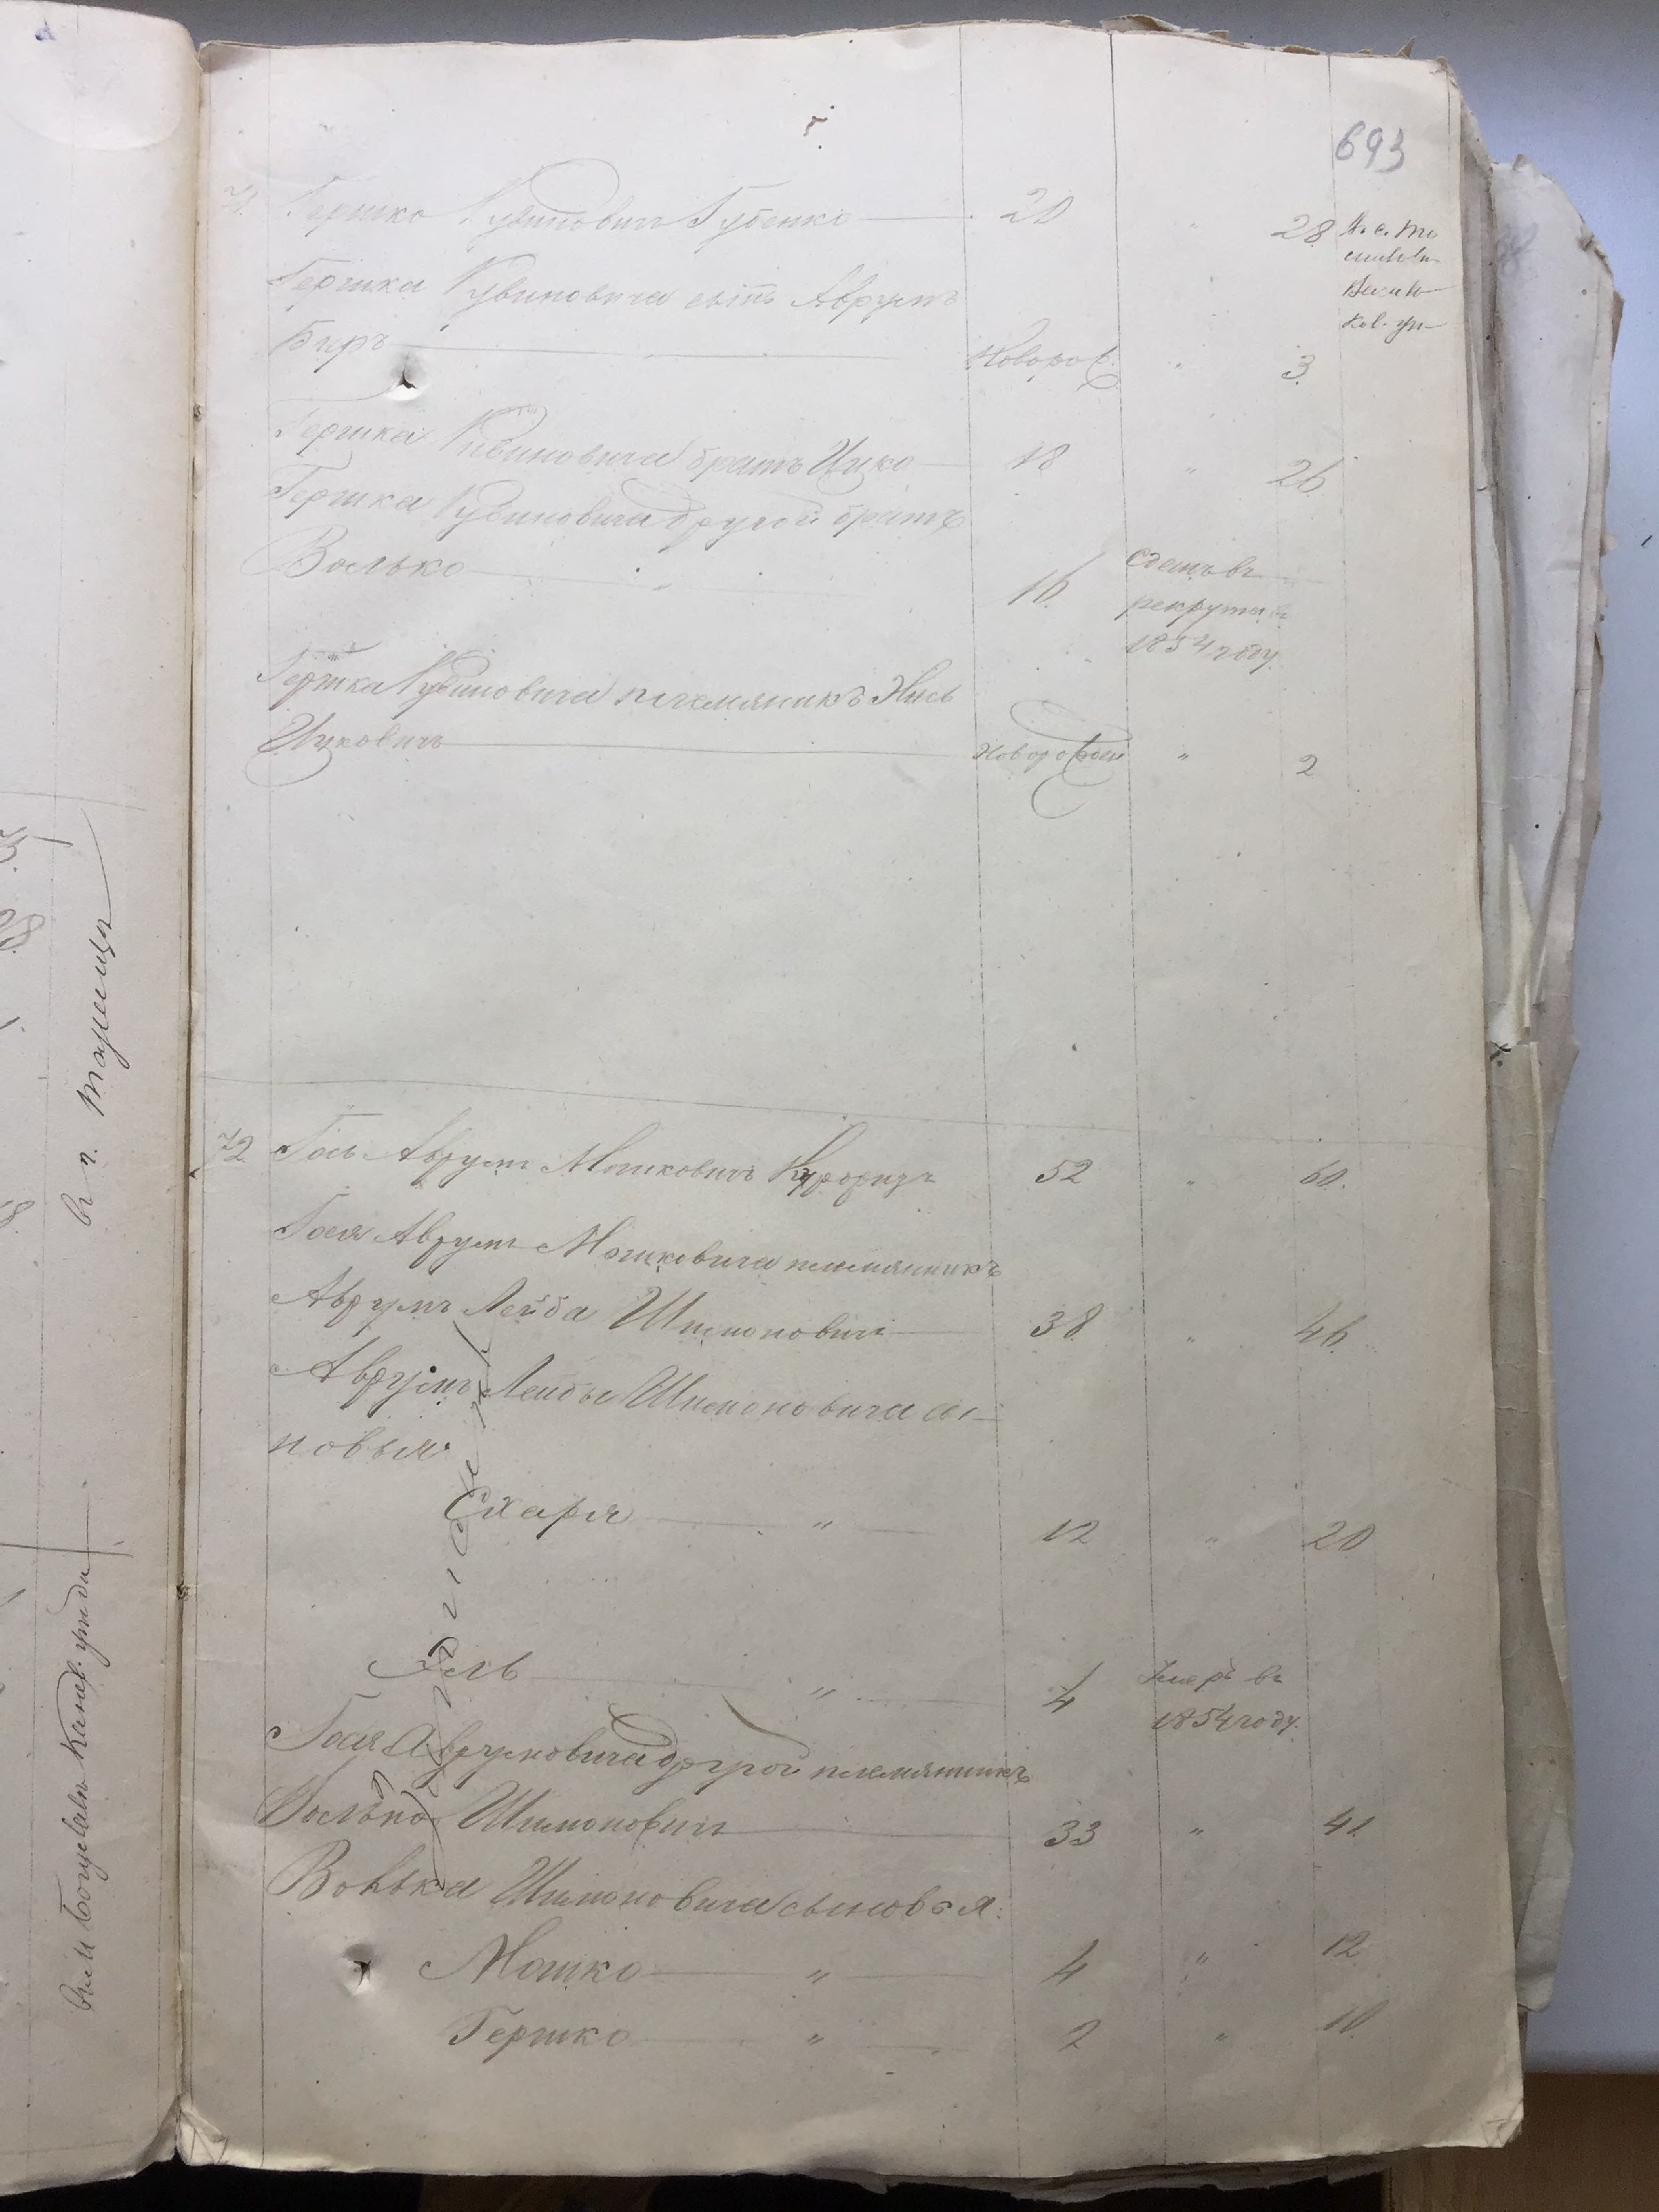 693
71. Гершко Рувиновичъ Губенко 20 " 28
Гершка Рувиновича сынъ Аврумъ
Беръ Новорож. " 3.
Гершка Рувиновича братъ Ицко 18 " 26
Гершка Рувиновича другой братъ
Волько 16. Сданъ въ
рекруты въ
1854 году.
Гершка Рувиновича племяникъ Нись
Ицковичъ Новорожден " 2
72 Гось Аврумъ Мошковичъ 52 " 60.
Гося Аврумъ Мошковича племянникъ
Аврумъ Лейба Шимоновичъ 38 " 46.
Аврумъ Лейбы Шимоновича сы-
новья
Схаря " 12 " 20
Эль " 4 Умеръ въ
1854 году.
Гося Аврумовича другой племянникъ
Волько Шимоновичъ 33 " 41.
Волька Шимоновича сыновья:
Мошко " 4 " 12.
Гершко " 2 " 10.
въ г. Таращи
Канев. уезда